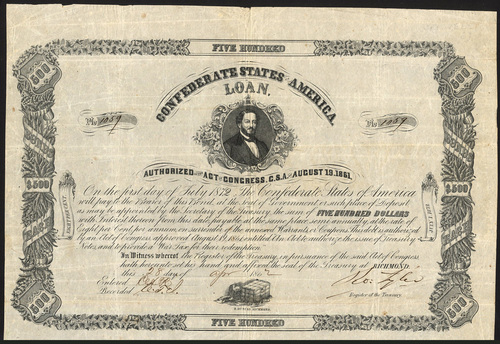 FIVE HUNDRED
500
500
CONFEDERATE STATES AMERICA.
LOAN.
No. 1059
No. 1059
AUTHORIZED BY ACT OF CONGRESS, C.S.A. OF AUGUST 19, 1861.
On the first day of July 1872 The Confederate States of America
will pay to the Bearer of this Bond, at the seat of Government, or such place of Deposit
as may be appointed by the Secretary of the Treasury, the sum of FIVE HUNDRED DOLLARS
with Interest thereon from this date, payable at the same place semi annually, at the rate of
Eight per Cent, per annum, on surrender of the annexed Warrants or Coupons. This debt is authorized
by an Act of Congress approved August 19, 1861, entitled An Act to authorize the issue of Treasury
Notes, and to provide a War Tax for their redemption.
$500
$500
EIGHT PER CENT
JULY 1 1872
In Witness whereof The Register of the Treasury, in pursuance of the said Act of Congress
hath hereunto set his hand and affixed the seal of the Treasury, at RICHMOND
this 28 day of Apr 1862
Entered
Recorded
Ro. Tyler
Register of the Treasury
500
500
FIVE HUNDRED